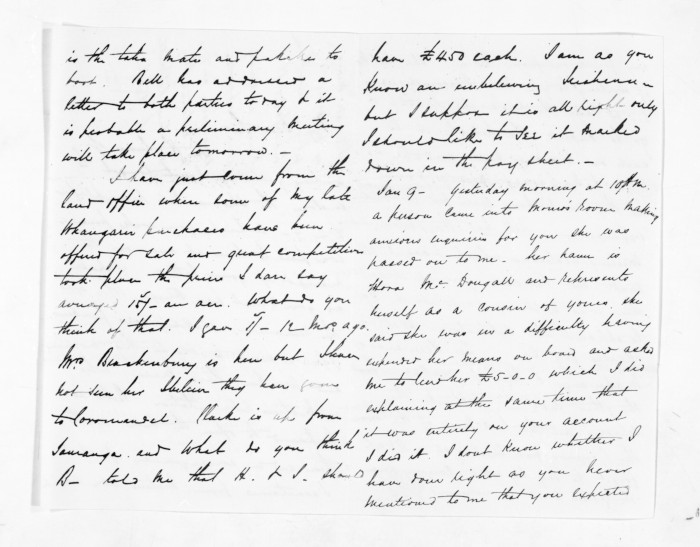 is the take mate and pakeha to
boot. Bell has addressed a
letter to both parties to day & it
is probable a preliminary meeting
will take place tomorrow. —
I have just come from the
land office where some of my late
Whangarei purchases have been
offered for sale and great competition
took place the price I dare say
averaged 15/- an acre. What do you
think of that. I gave 5/- 12 mos. ago.
Mrs Brackenbury is here but I have
not seen her I believe they have gone
to Coromandel. Clarke is up from
Tauranga. and what do you think
B— told me that H. & I. should
have £450 each. I am as you
know an unbelieving
but I suppose it is all right only
I should like to see it marked
down in the pay sheet. —
Jan 9 — Yesterday morning at 10
a person came into Morris' Room making
anxious inquiries for you she was
passed on to me. her name is
Flora McDougall and represents
herself as a cousin of yours, she
said she was in a difficulty having
expended her means on board and asked
me to lend her £5-0-0 which I did
explaining at the same time that
it was entirely on your account
I did it. I dont know whether I
have done right as you never
mentioned to me that you expected